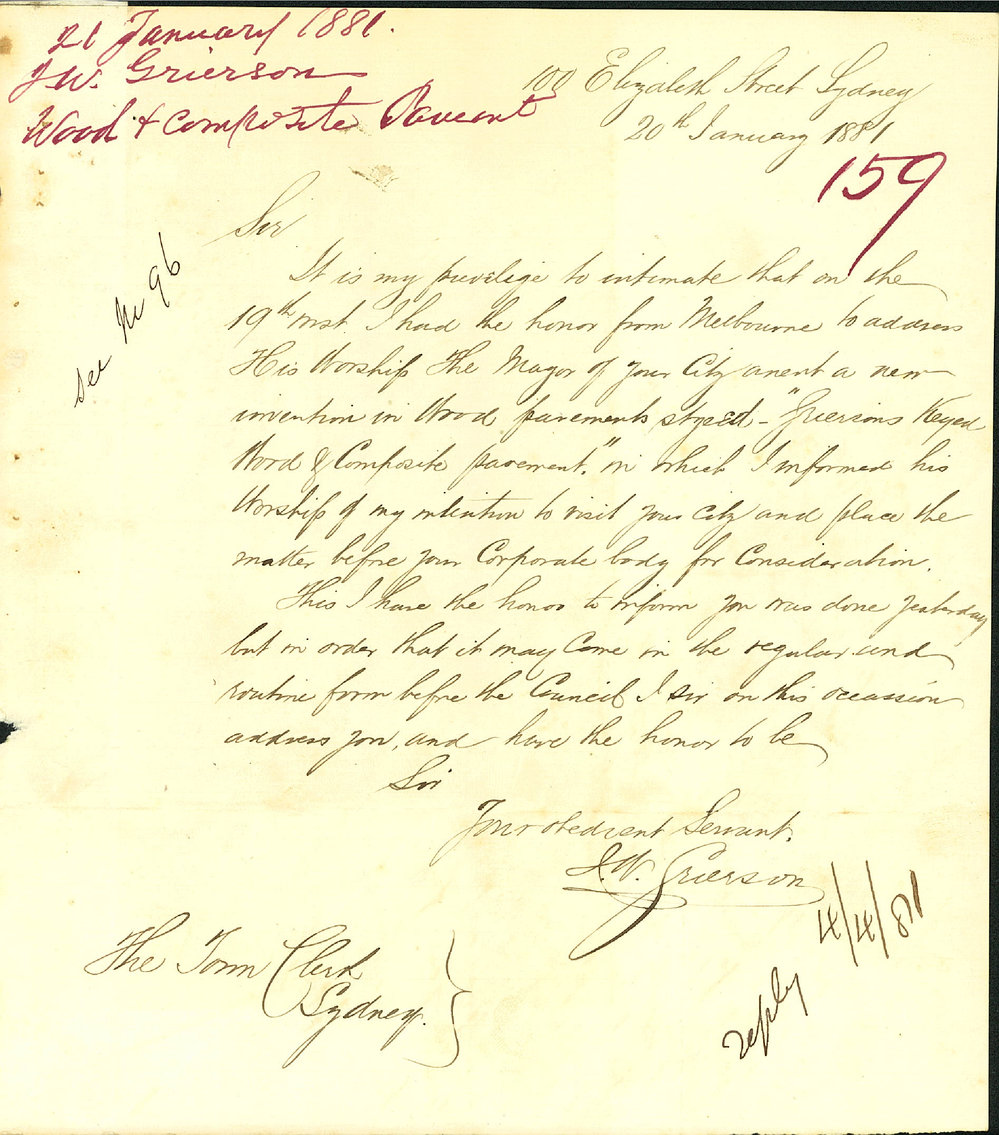 21 January 1881.
J W. Grierson
Wood & Composite Pavement
100 Elizabeth Street Sydney
20th January 1881
159
see No 96
Sir
It is my privilige to intimate that on the
19th inst. I had the honor from Melbourne to address
His Worship The Mayor of your City anent a new
invention in Wood pavements styled - "Griersons Keyed
Wood & Composite pavement." in which I informed his
Worship of my intention to visit your City and place the
matter before your Corporate body for Consideration.
This I have the honor to inform you was done yesterday
but in order that it may Come in the regular and
routine form before the Council I sir on this occassion
address you, and have the honor to be
Sir
Your obedient Servant.
J. W. Grierson
The Town Clerk
Sydney.
reply 4/4/81